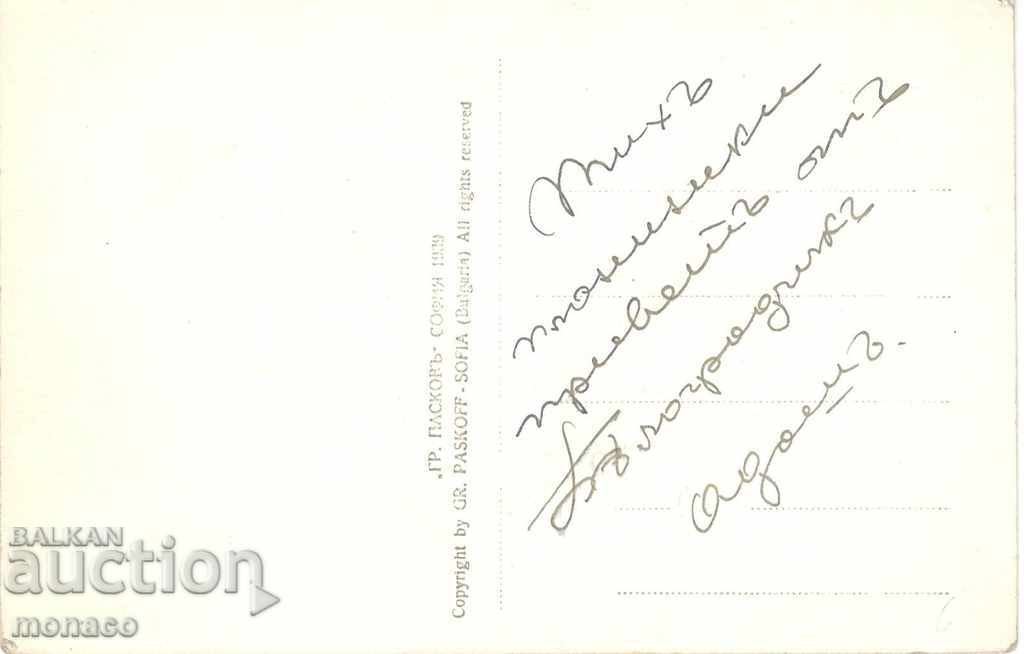 „ГР. ПАСКОВЪ“ - СОФИЯ 1939
Copyright by GR. PASKOFF - SOFIA (Bulgaria) All rights reserved
Тихъ
привѣтъ отъ
Бѣлоградчикъ
BALKAN
auction
monaco